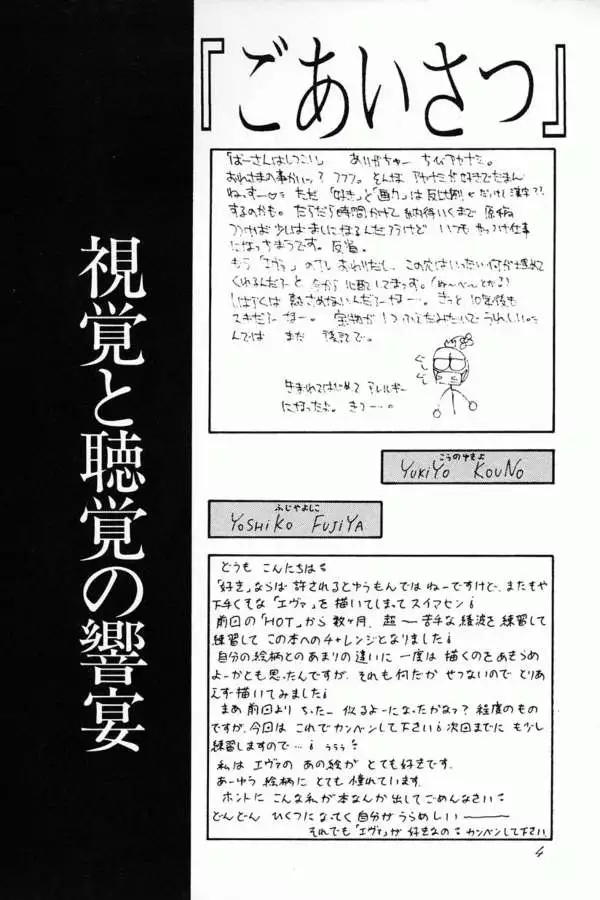 『ごあいさつ』
視覚と聴覚の響宴
「ばーさんはしつこい」 ありがちゅー ちびアヤナミ。
おれさまの事かいッ? フフフ。そんな アヤナミが好きでたまん
ねっすー ただ 「好き」と「画力」は反比例
するのかも。だらだら時間かけて納得いくまで 原稿
つけば 少しはましになるんだろうけど いつも やっつけ仕事
になっちまうです。反省。
もう「エヴァ」のTV おわりだし、この穴はいったい何が埋めて
くれるんだろーと 今から心配してまっす。
しばらくは 熱さめないんだろーなー…。きっと 10年後も
スキだろーなー。 宝物が 1つふえたみたいで うれしい。
んでは また 後記で。
生まれてはじめて アレルギー
になったよ。きつー…。
こうのゆきよ
YUKIYO KOUNO
ふじやよしこ
YOSHIKO FUJIYA
どうも こんにちは
「好き」ならば 許されるとゆうもんではねーですけど、またもや
下手くそな 「エヴァ」を描いてしまって スイマセン
前回の「HOT」から 数ヶ月、超〜 苦手な綾波を練習して
練習して この本へのチャレンジとなりました
自分の絵柄とのあまりの違いに 一度は 描くのをあきらめ
よーかとも思ったんですが、それも何だか せつないので とりあ
えず 描いてみました
まあ 前回より ちったー 似るよーになったかなァ? 程度のもの
ですが、今回は これでカンベンして下さい 次回までに もう少し
練習しますので…
私は エヴァの あの絵が とても好きです。
あーゆう絵柄に とても 憧れています。
ホントに こんな私が本なんか出してごめんなさい
どんどん ひくつになってく自分がうらめしい
それでも「エヴァ」が 好きなの カンベンして下さい
4